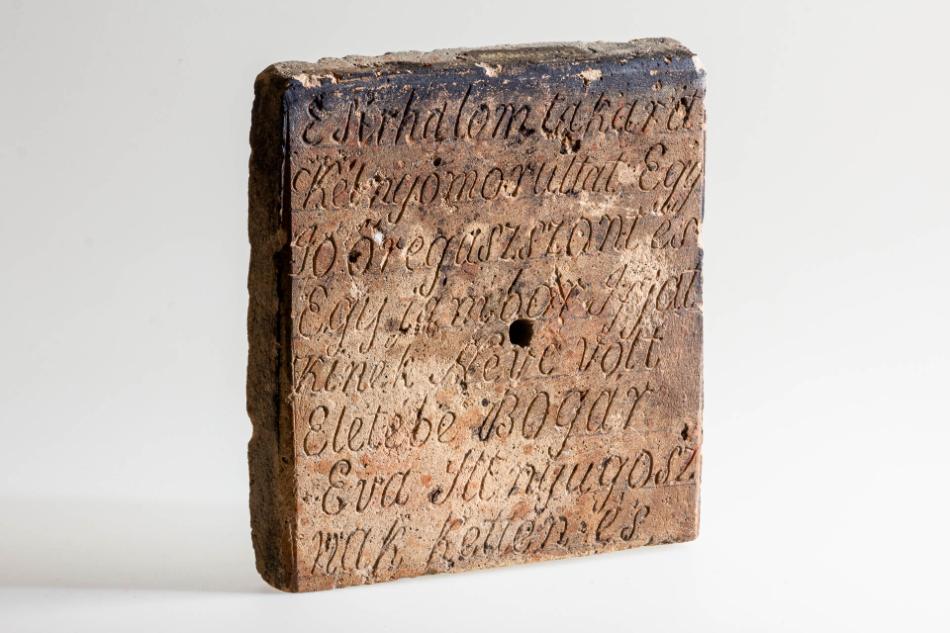 E Sirhalom takarít
Két nyomorultat Egÿ
Jó öregaszszont és
Egÿ jámbor Ifjat
Kinek Neve volt
Elete be BOgár
Eva Itt nyugosz
nak ketten és